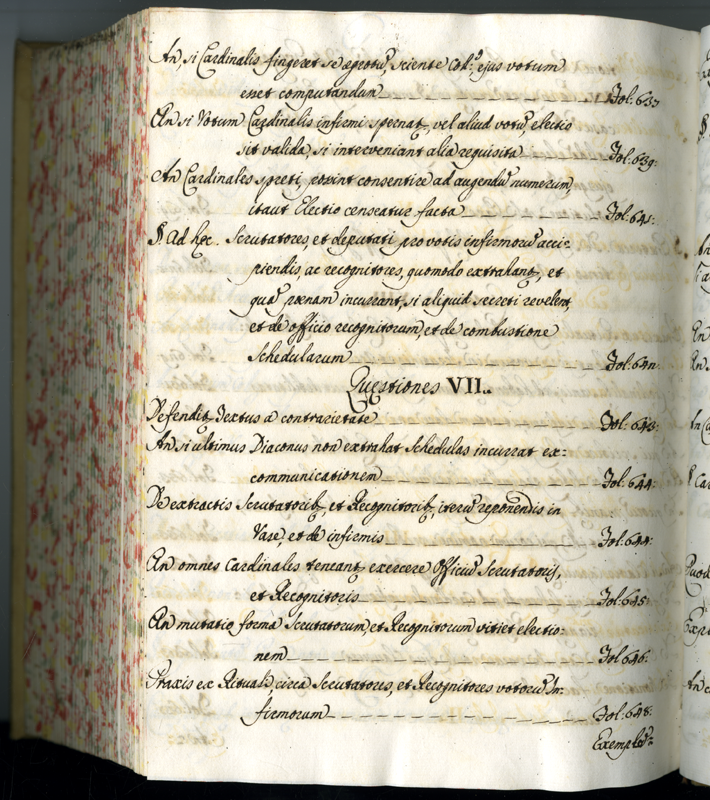 An, si Cardinalis fingeret se egrotū, sciente Coll:º, ejus votum
esset computandum Fol: 637
An si Votum Cardinalis infirmi spernat, vel aliud votū, electio
sit valida, si interveniant alia requisita Fol: 639:
An Cardinales spreti, possint consentire ad augendū numerum,
itaut Electio censeatur facta Fol: 641:
§. Ad hęc. Scrutatores, et deputati pro votis infirmorū acci-
piendis, ac recognitores, quomodo extrahant, et
quā pœnam incurrant, si aliquid secreti revelent,
et de officio recognitorum, et de combustione
Schedularum Fol: 642.
Questiones VII..
Defendit Textus a contrarietate Fol: 643:
An si ultimus Diaconus non extrahat Schedulas incurrat ex=
communicationem Fol: 644:
De extractis Scrutatorib, et Recognitorib, iterū reponendis in
Vase, et de infirmis Fol: 644:
An omnes Cardinales teneant exercere Officiū Scrutatoris,
et Recognitoris Fol: 645:
An mutatio formæ Scrutatorum, et Recognitorum vitiet electio-
nem Fol: 646:
Praxis ex Rituali, circa Scrutatores, et Recognitores votorū In-
firmorum Fol: 648: